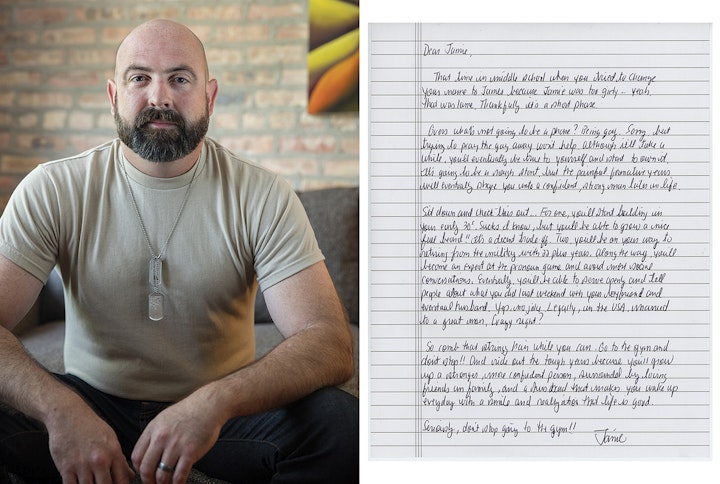 Dear Jamie,
That time in middle school when you tried to change
your name to James because Jamie was too girly... yeah.
That was lame. Thankfully it's a short phase.
Guess what's not going to be a phase? Being gay. Sorry, but
trying to pray the gay away won't help. Although it'll take a
while, you'll eventually be true to yourself and start to own it.
It's going to be a rough start, but the painful formative years
will eventually shape you into a confident, strong man later in life.
Sit down and check this out... For one, you'll start balding in
your early 30s. Sucks I know, but you'll be able to grow a nice
full beard!! It's a decent trade off. Two, you'll be on your way to
retiring from the military with 20 plus years. Along the way you'll
become an expert at the pronoun game and avoid most social
conversations. Eventually, you'll be able to serve openly and tell
people about what you did last weekend with your boyfriend and
eventual husband. Yep, no joke. Legally, in the USA, married
to a great man. Crazy right?
So comb that strong hair while you can. Go to the gym and
don't stop!! And ride out the tough years because you'll grow
up a stronger, more confident person, surrounded by loving
friends and family, and a husband that makes you wake up
everyday with a smile and realization that life is good.
Seriously, don't stop going to the gym!!
Jamie